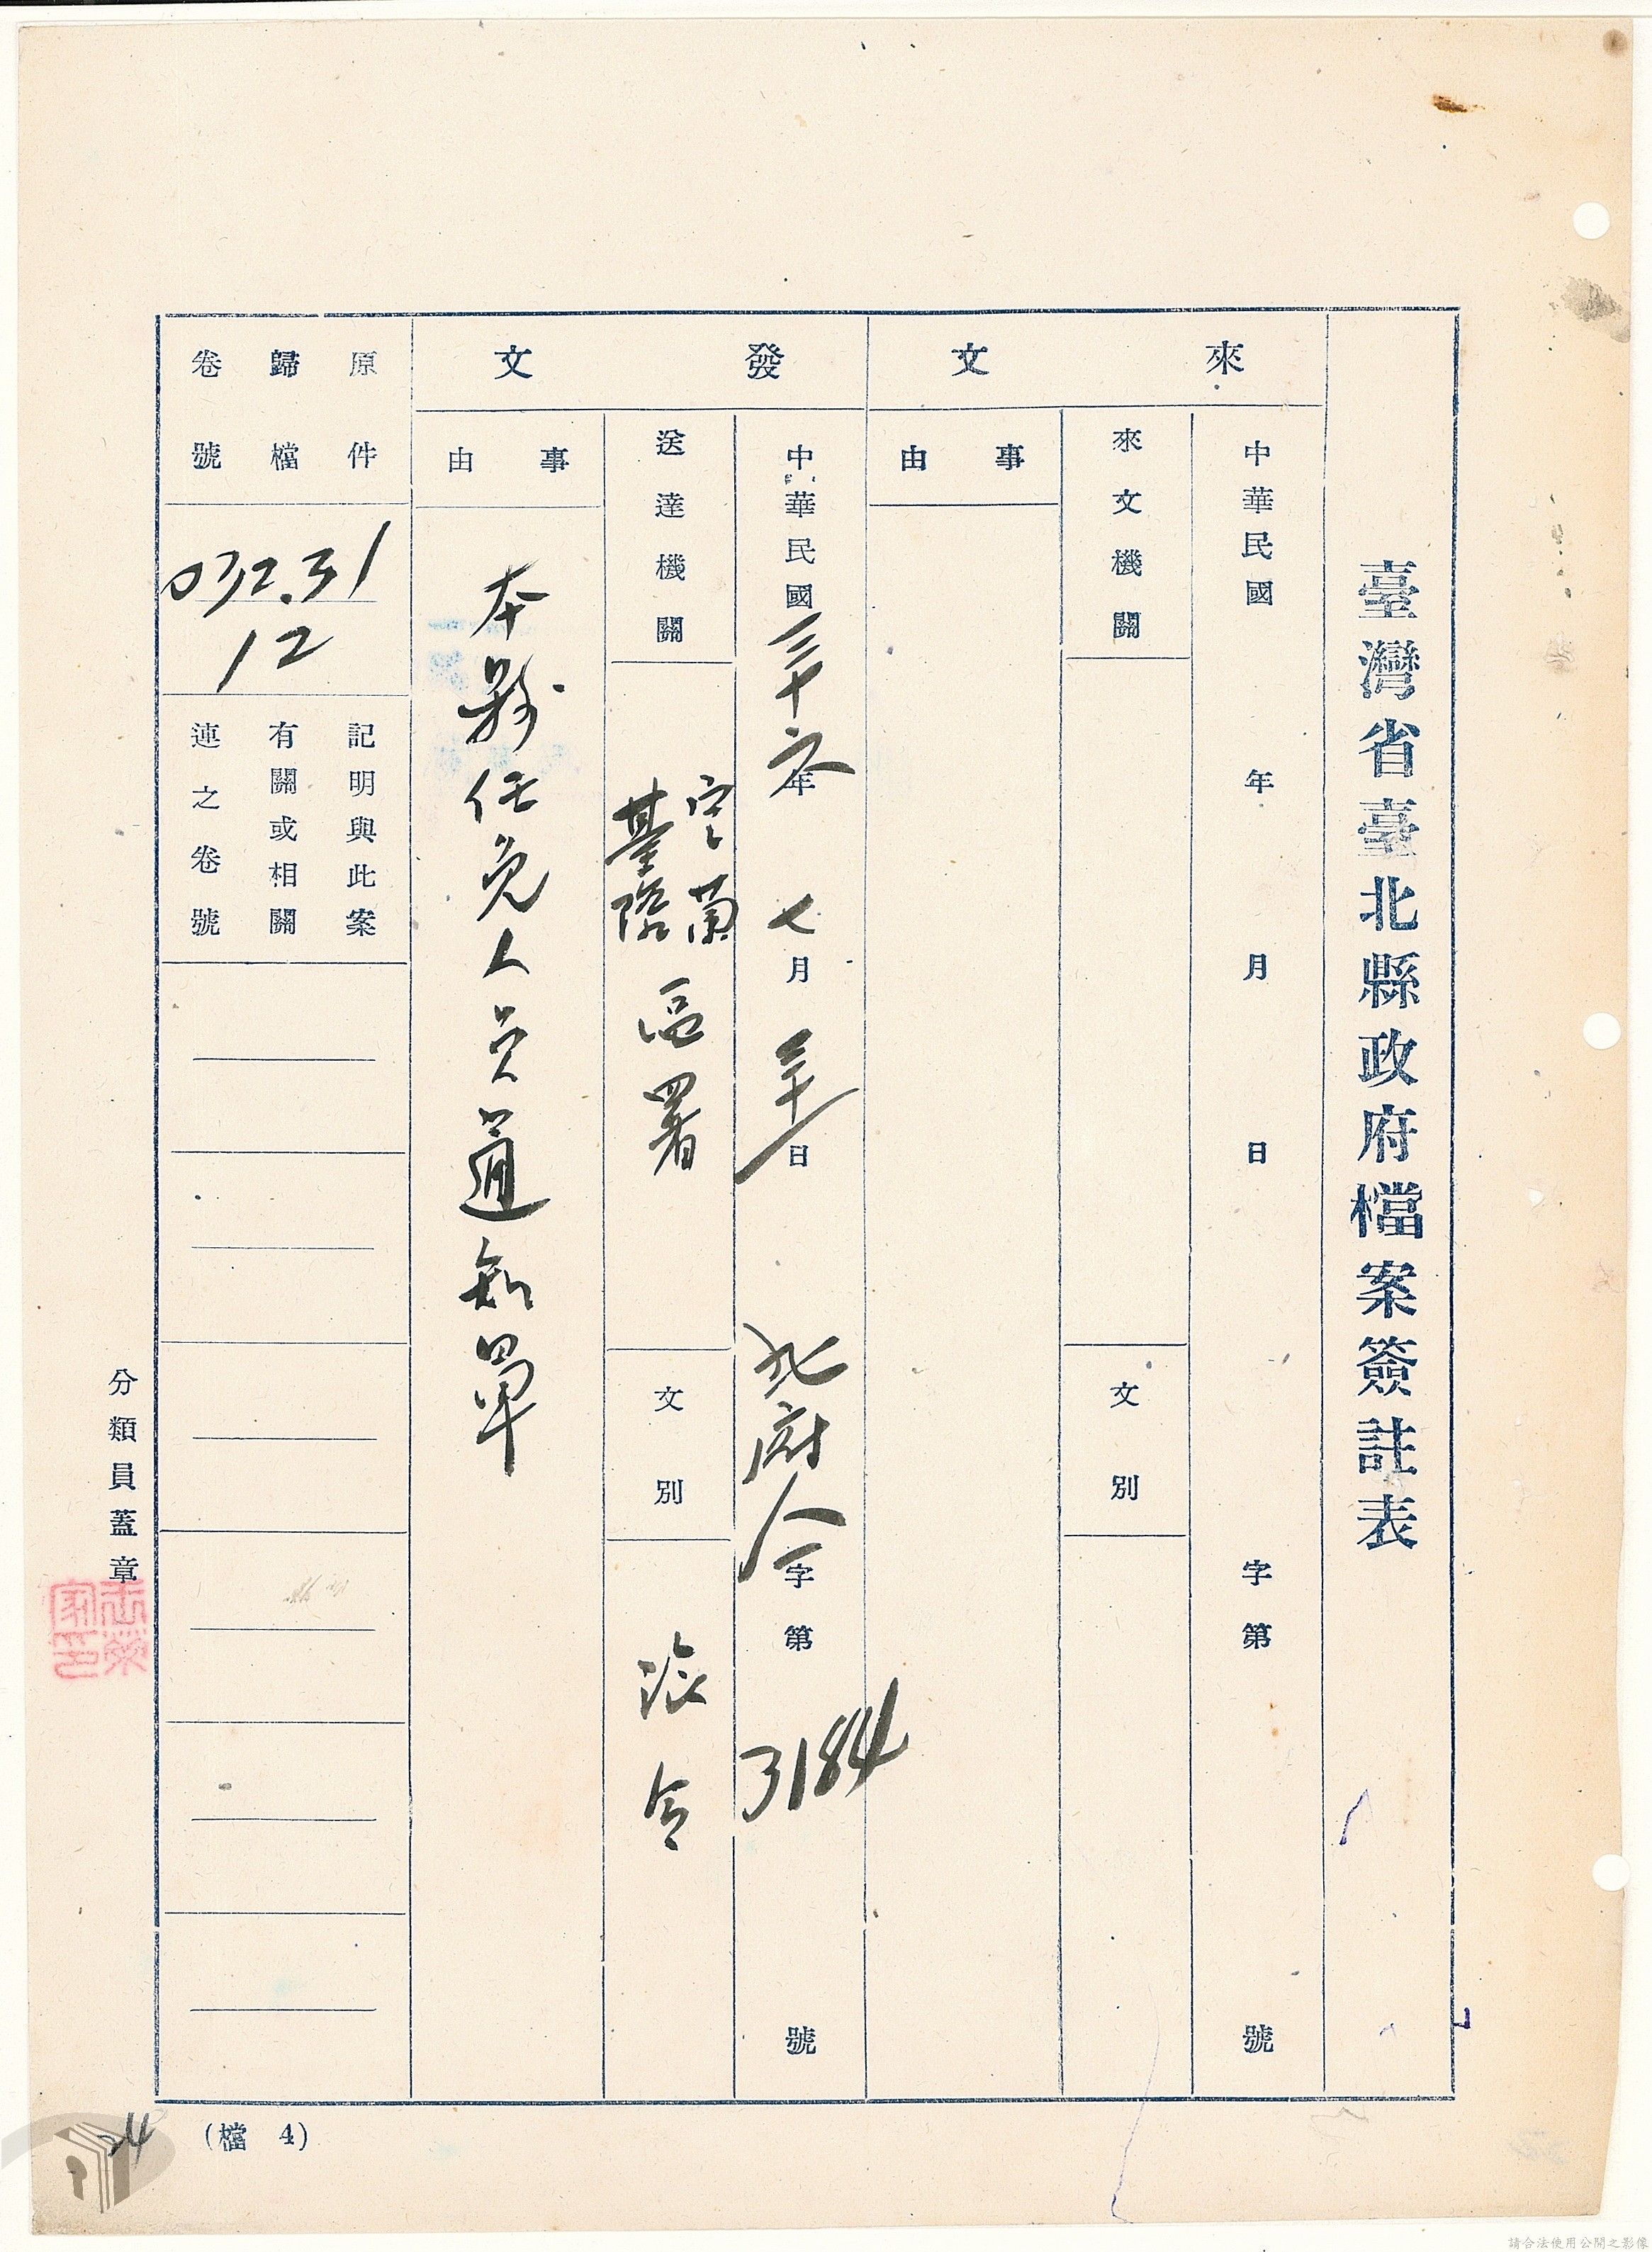 臺灣省臺北縣政府檔案簽註表
來文
中華民國 年 月 日 字第 號
來文機關
文別
事由
發文
中華民國三十六年七月三十日 北府人字第3184號
送達機關 宜蘭 基隆 區署
文別 派令
事由
本縣任免人員通知單
原件
歸檔
卷號
032.31
12
記明與此案
有關或相關
連之卷號
分類員蓋章
(檔 4)
請合法使用公開之影像